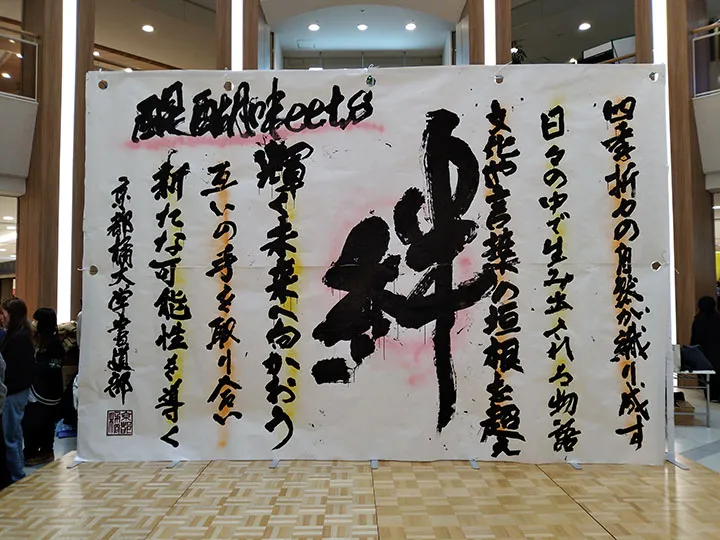 四季折々の自然が織り成す
日々の中で生み出される物語
文化や言葉の垣根を超え
絆
醍醐meets
輝く未来へ向かおう
互いの手を取り合い
新たな可能性を導く
京都橘大学書道部